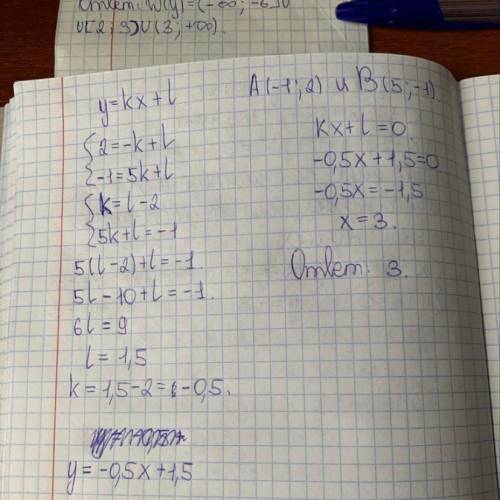 Ответ: W(y)=(-∞; -6]U
U[2; 3)U(3; +∞).
y=kx+l
{2=-k+l
{-1=5k+l
{k=l-2
{5k+l=-1
5(l-2)+l=-1.
5l-10+l=-1.
6l=9
l=1,5
k=1,5-2=-0,5.
y=-0,5x+1,5
A(-1; 2) и B(5; -1)
Kx+l=0.
-0,5x+1,5=0
-0,5x=-1,5
x=3.
Ответ: 3.